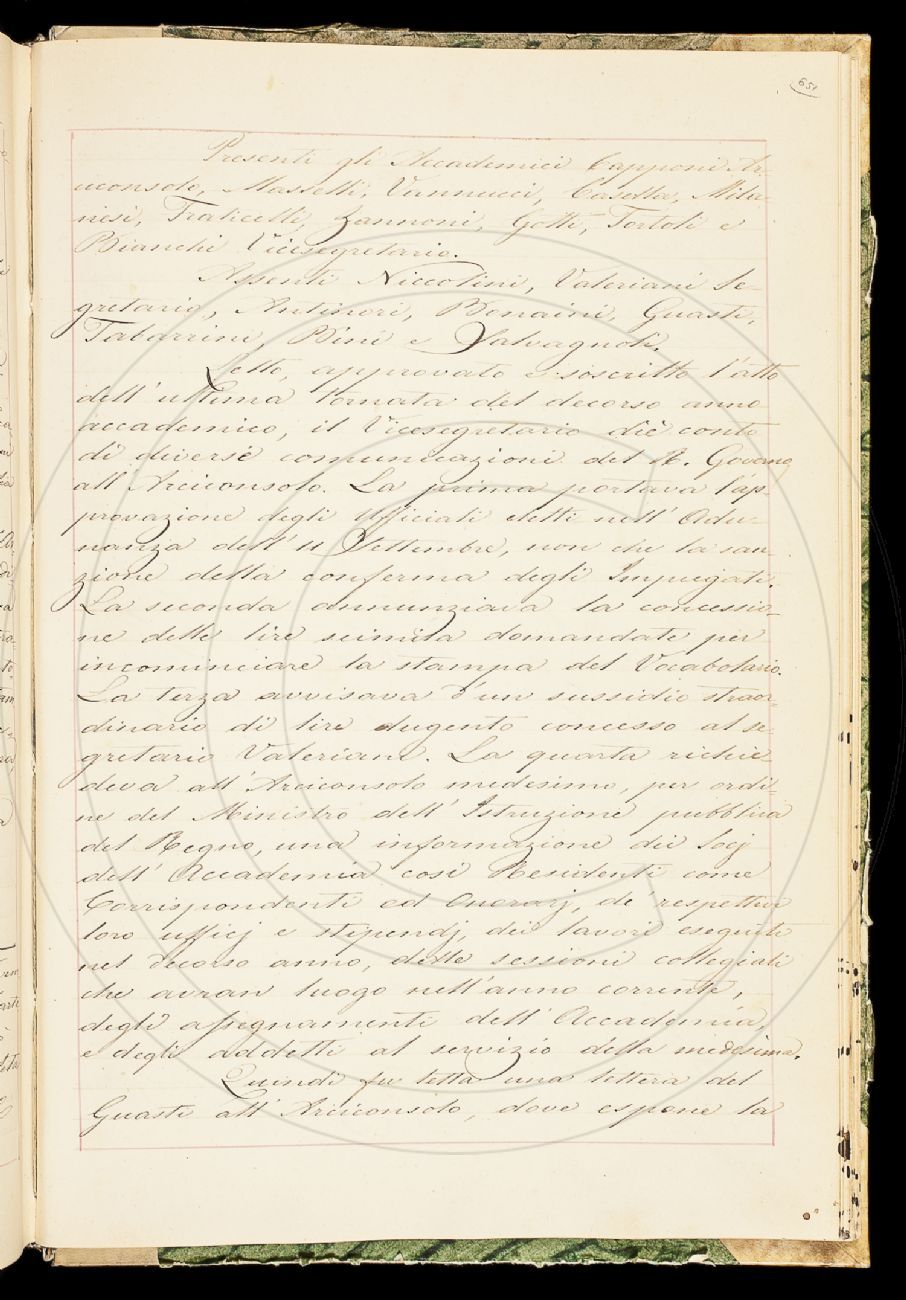 651
Presenti gli Accademici Capponi Ar-
ciconsolo, Masselli, Vannucci, Casella, Mila-
nesi, Fraticelli, Zannoni, Gotti, Tortoli e
Bianchi Vicesegretario.
Assenti Niccolini, Valeriani Se-
gretario, Antinori, Bonaini, Guasti,
Tabarrini, Bini e Salvagnoli.
Letto, approvato e soscritto l'atto
dell'ultima tornata del decorso anno
accademico, il Vicesegretario diè conto
di diverse comunicazioni del R. Governo
all'Arciconsolo. La prima portava l'ap-
provazione degli ufficiali eletti nell'Adu-
nanza dell'11 Settembre, non che la san-
zione della conferma degli Impiegati.
La seconda annunziava la concessio-
ne delle lire seimila domandate per
incominciare la stampa del Vocabolario.
La terza avvisava d'un sussidio straor-
dinario di lire dugento concesso al se-
gretario Valeriani. La quarta richie-
deva all'Arciconsolo medesimo, per ordi-
ne del Ministro dell'Istruzione pubblica
del Regno, una informazione dei Socj
dell'Accademia così Residenti come
Corrispondenti ed Onorarj, de' respettivi
loro ufficj e stipendj, dei lavori eseguiti
nel decorso anno, delle sessioni collegiali
che avran luogo nell'anno corrente,
degli assegnamenti dell'Accademia,
e degli addetti al servizio della medesima.
Quindi fu letta una lettera del
Guasti all'Arciconsolo, dove espone la